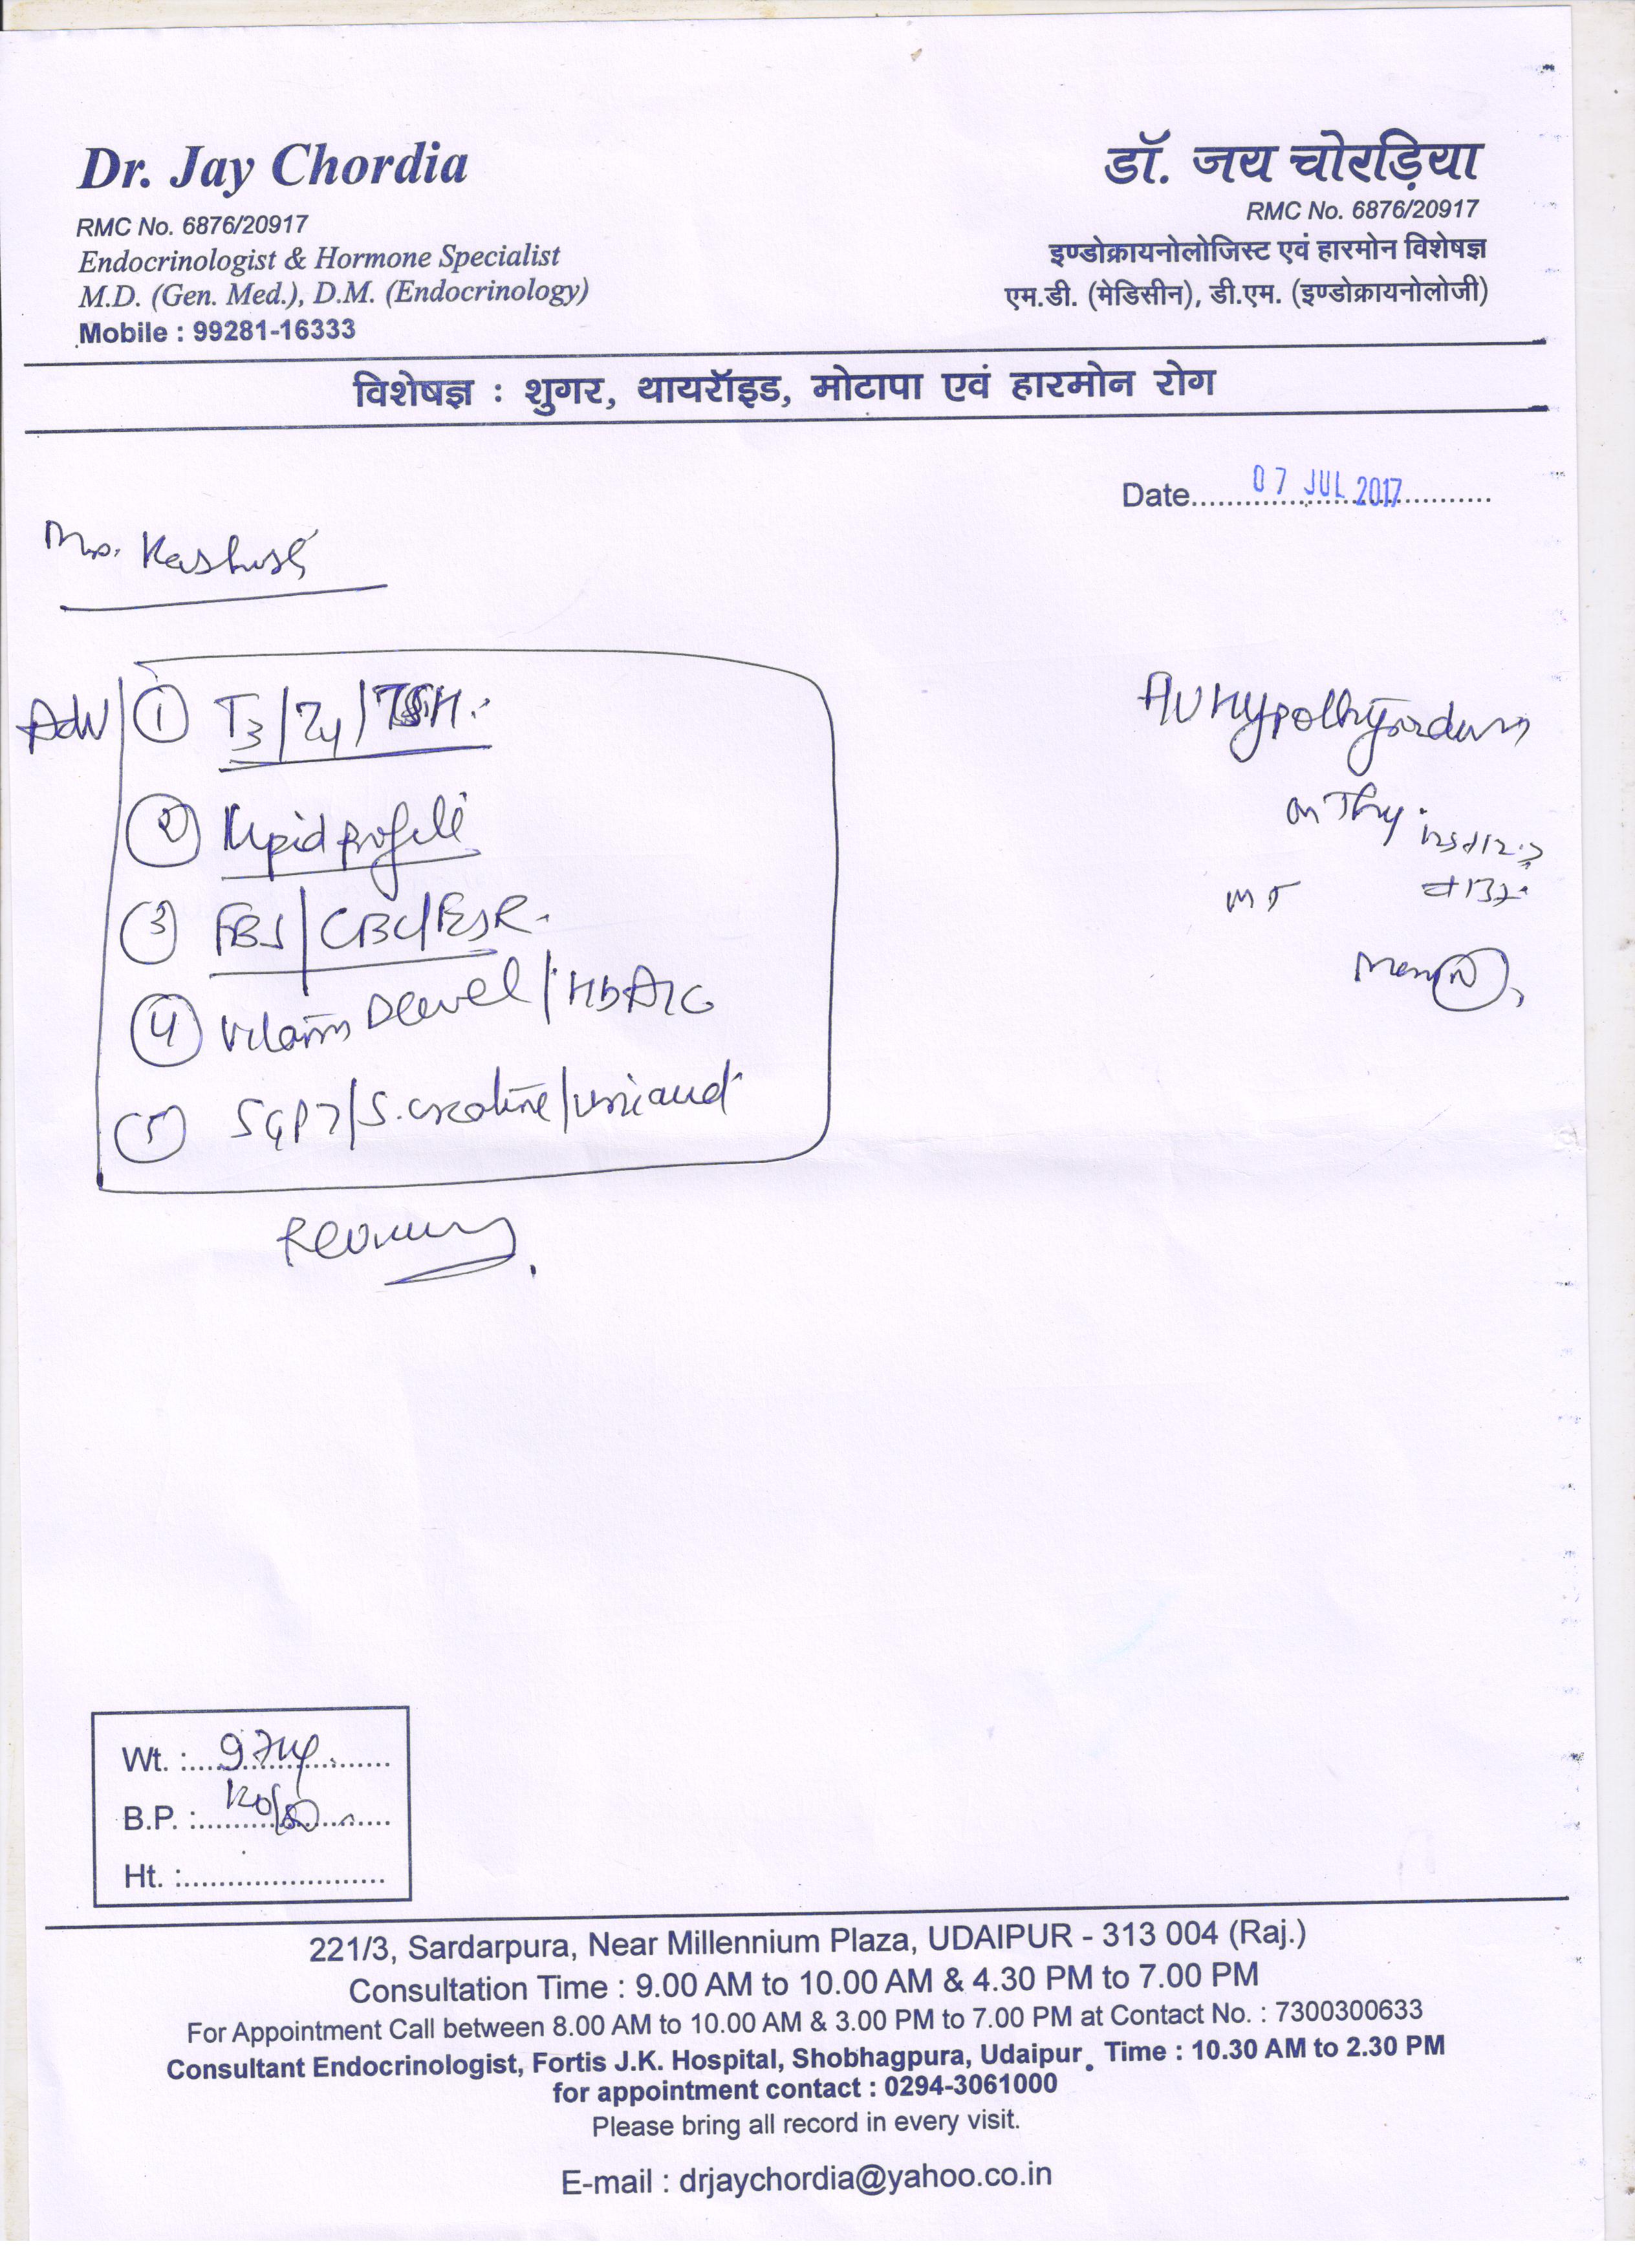 Dr. Jay Chordia
RMC No. 6876/20917
Endocrinologist & Hormone Specialist
M.D. (Gen. Med.), D.M. (Endocrinology)
Mobile : 99281-16333
डॉ. जय चोरड़िया
RMC No. 6876/20917
इण्डोक्रायनोलोजिस्ट एवं हारमोन विशेषज्ञ
एम.डी. (मेडिसीन), डी.एम. (इण्डोक्रायनोलोजी)
विशेषज्ञ : शुगर, थायरॉइड, मोटापा एवं हारमोन रोग
Date 07 JUL 2017
Kashish
Adv
① T3/T4/TSH
② Lipid profile
③ FBS/CBC/ESR
④ Vitamin D level/HbA1C
⑤ SGPT/S. creatine/
Hypothyroidism
on Thy
Wt. : 97kg
B.P. : 120/80
Ht. :
221/3, Sardarpura, Near Millennium Plaza, UDAIPUR - 313 004 (Raj.)
Consultation Time : 9.00 AM to 10.00 AM & 4.30 PM to 7.00 PM
For Appointment Call between 8.00 AM to 10.00 AM & 3.00 PM to 7.00 PM at Contact No. : 7300300633
Consultant Endocrinologist, Fortis J.K. Hospital, Shobhagpura, Udaipur. Time : 10.30 AM to 2.30 PM
for appointment contact : 0294-3061000
Please bring all record in every visit.
E-mail : drjaychordia@yahoo.co.in